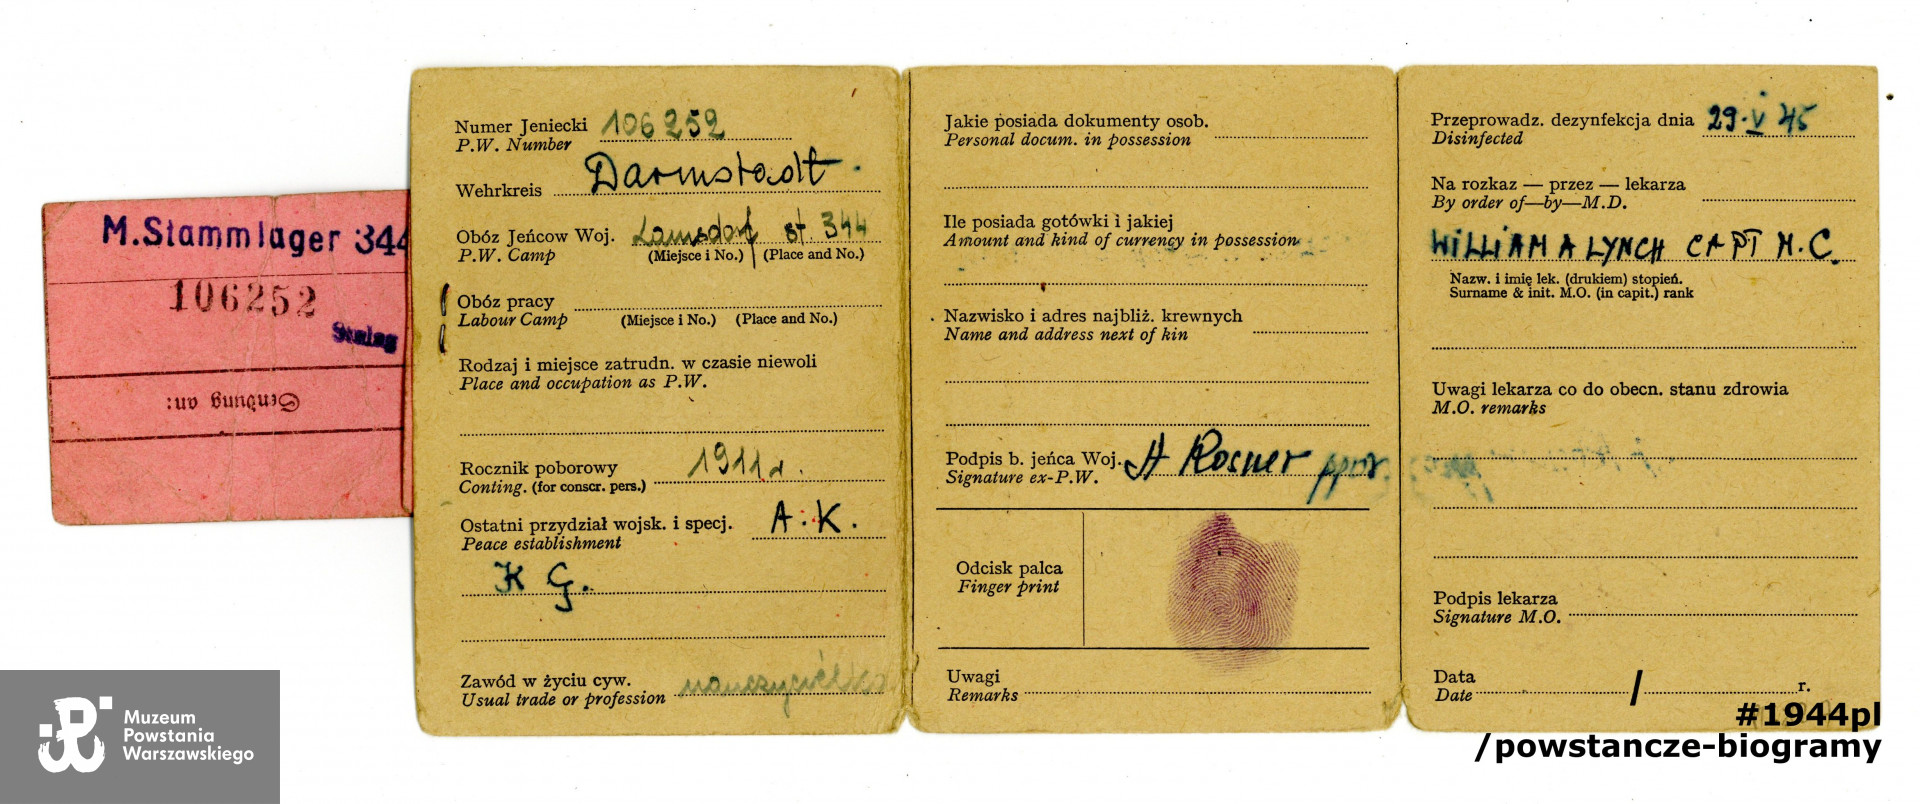 M. Stammlager 344
106252
Stalag
Sendung an:
Numer Jeniecki 106252
P.W. Number
Wehrkreis Darmstadt.
Obóz Jeńcow Woj. Lamsdorf st. 344
P.W. Camp (Miejsce i No.) (Place and No.)
Obóz pracy
Labour Camp (Miejsce i No.) (Place and No.)
Rodzaj i miejsce zatrudn. w czasie niewoli
Place and occupation as P.W.
Rocznik poborowy 1911 r.
Conting. (for conscr. pers.)
Ostatni przydział wojsk. i specj. A.K.
Peace establishment
K G.
Zawód w życiu cyw. nauczycielka
Usual trade or profession
Jakie posiada dokumenty osob.
Personal docum. in possession
Ile posiada gotówki i jakiej
Amount and kind of currency in possession
Nazwisko i adres najbliż. krewnych
Name and address next of kin
Podpis b. jeńca Woj. H Rosner ppor.
Signature ex-P.W.
Odcisk palca
Finger print
Uwagi
Remarks
Przeprowadz. dezynfekcja dnia 29. V 45
Disinfected
Na rozkaz — przez — lekarza
By order of—by—M.D.
WILLIAM A LYNCH CAPT M.C.
Nazw. i imię lek. (drukiem) stopień.
Surname & init. M.O. (in capit.) rank
Uwagi lekarza co do obecn. stanu zdrowia
M.O. remarks
Podpis lekarza
Signature M.O.
Data / r.
Date
#1944pl
/powstancze-biogramy
Muzeum
Powstania
Warszawskiego